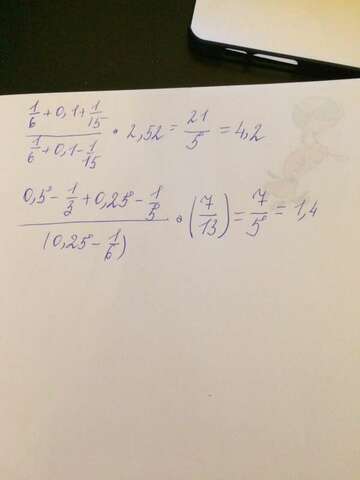 1/6 + 0,1 + 1/15
1/6 + 0,1 - 1/15 · 2,52 = 21/5 = 4,2
0,5 - 1/3 + 0,25 - 1/5
(0,25 - 1/6) · (7/13) = 7/5 = 1,4